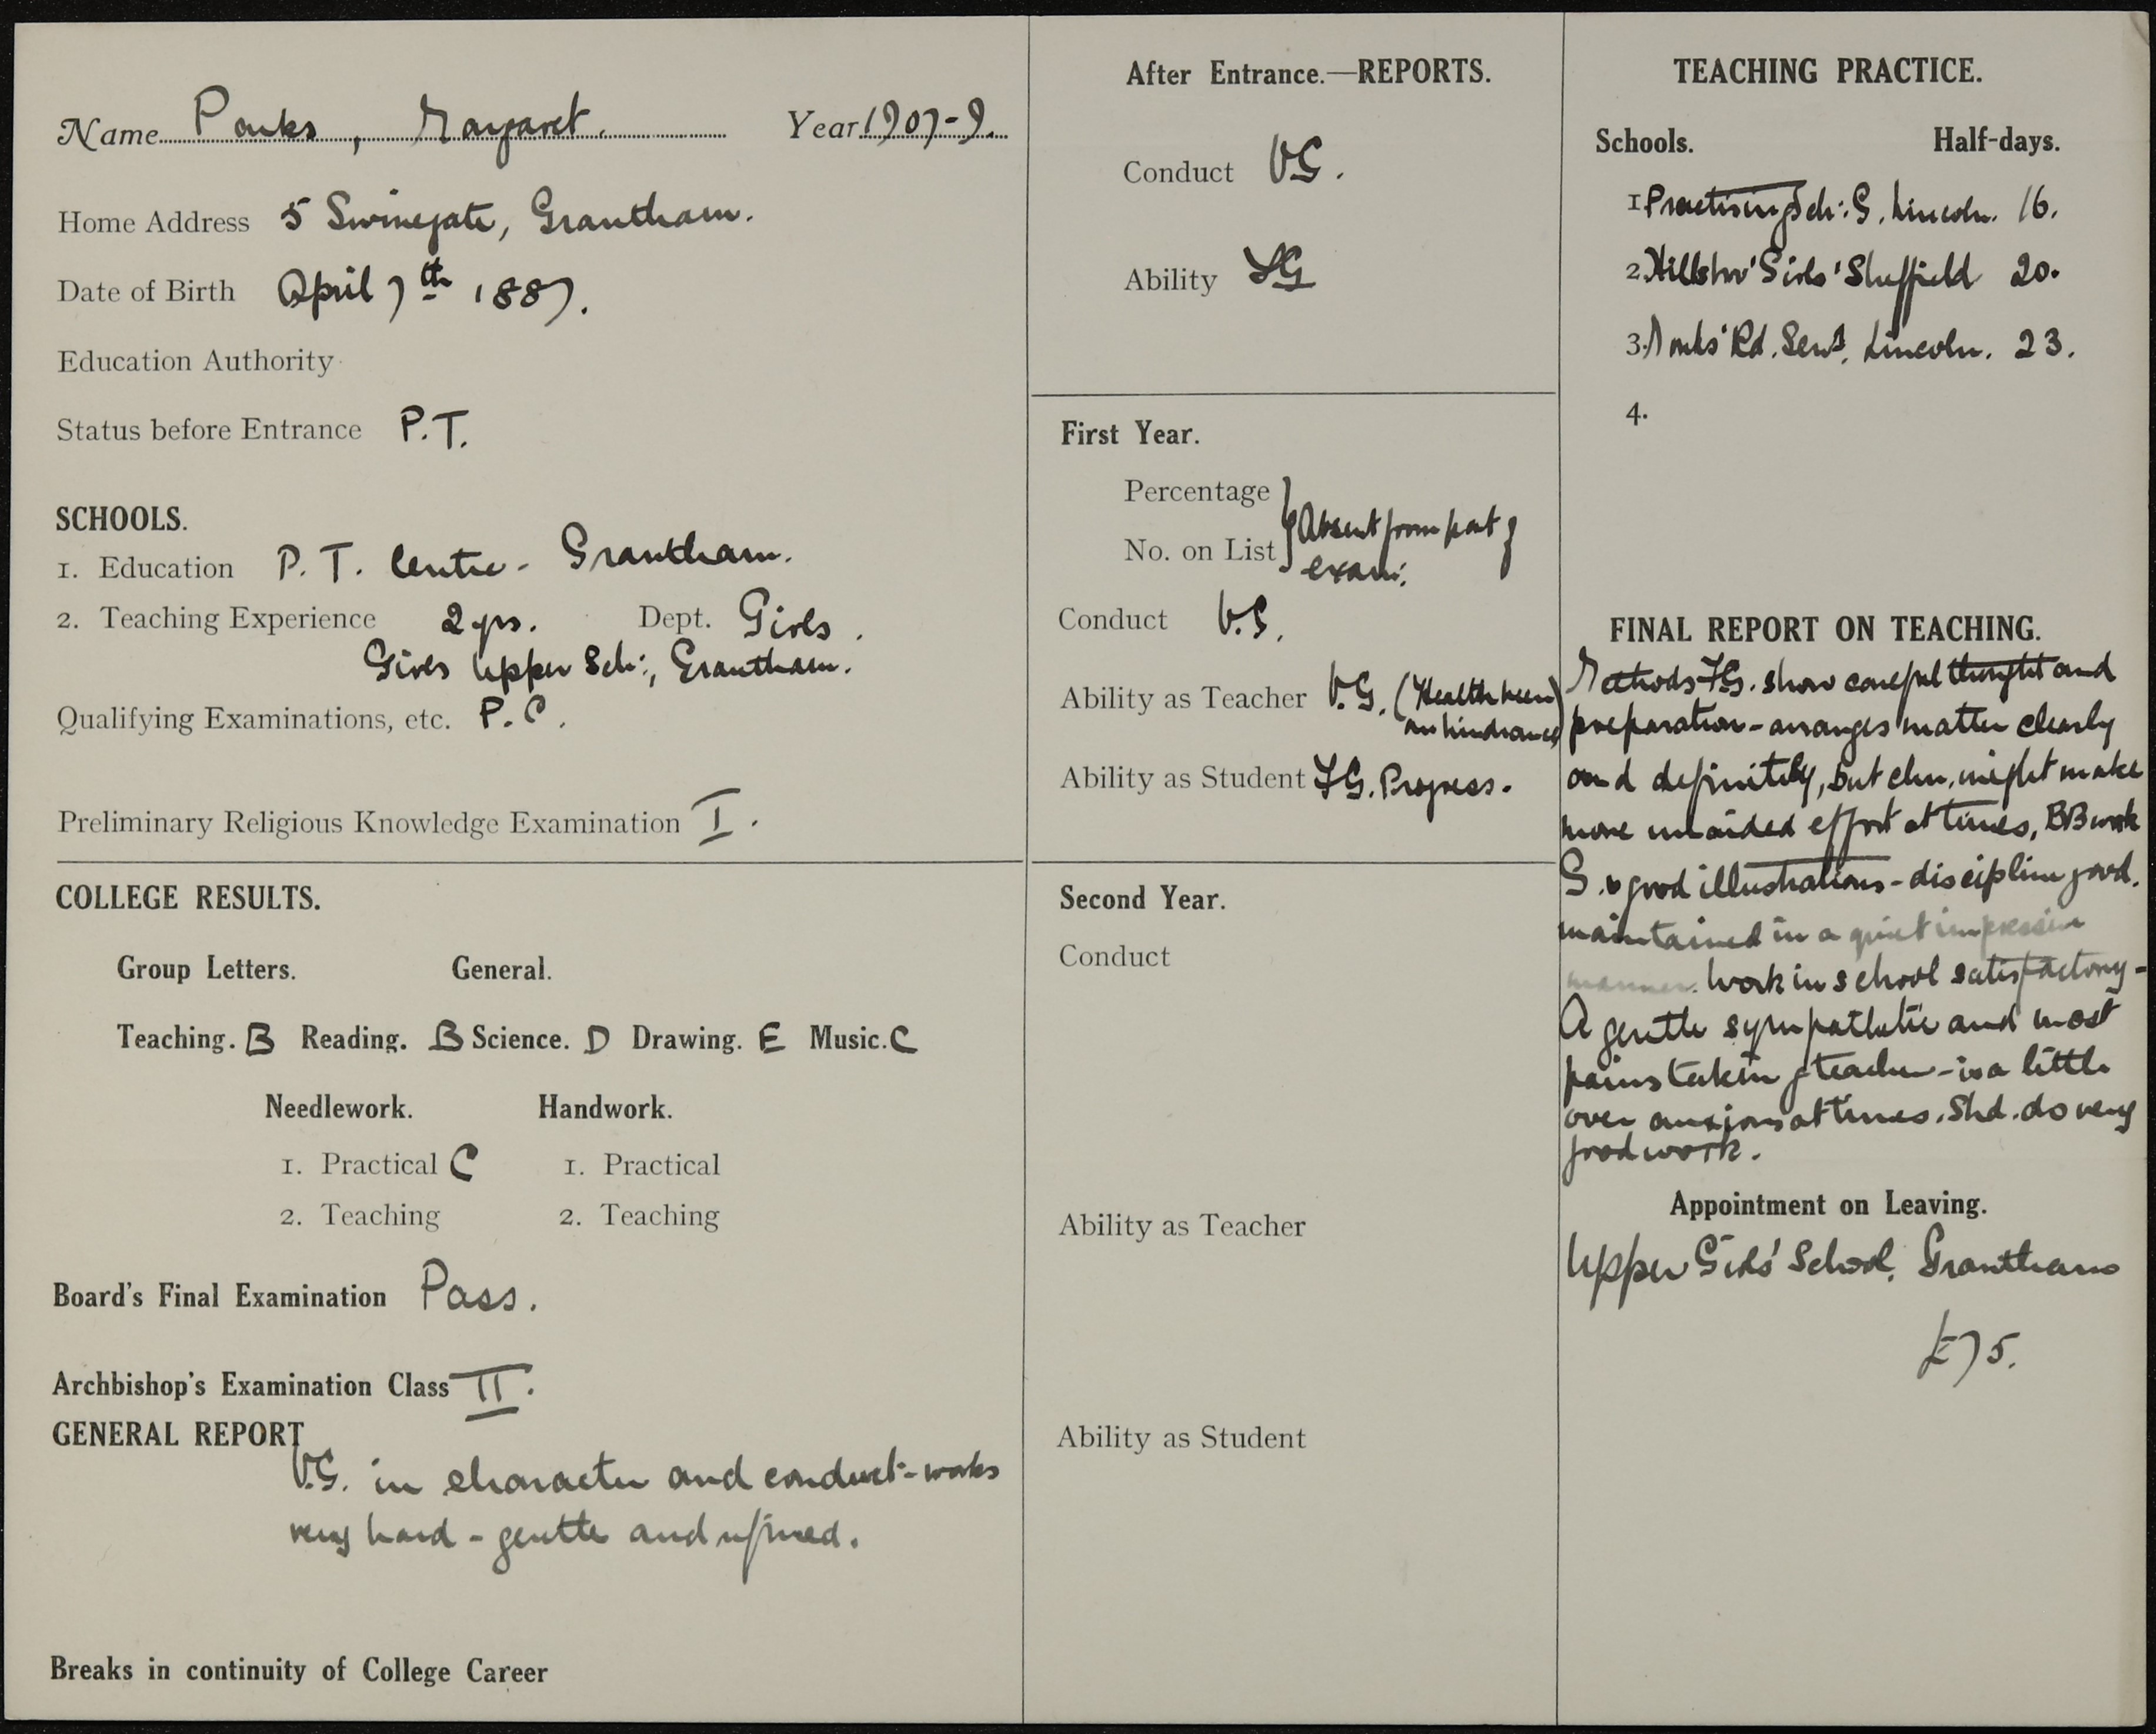 Name Parks, Margaret. Year 1907-9.
Home Address 5 Swinegate, Grantham.
Date of Birth April 7th 1887.
Education Authority
Status before Entrance P.T.
SCHOOLS.
1. Education P.T. Centre - Grantham.
2. Teaching Experience 2 yrs. Dept. Girls.
Girls Upper Sch:, Grantham.
Qualifying Examinations, etc. P.C.
Preliminary Religious Knowledge Examination I.
COLLEGE RESULTS.
Group Letters. General.
Teaching. B Reading. B Science. D Drawing. E Music. C
Needlework. Handwork.
1. Practical C 1. Practical
2. Teaching 2. Teaching
Board's Final Examination Pass.
Archbishop's Examination Class II.
GENERAL REPORT
V.G. in character and conduct - works
very hard - gentle and refined.
Breaks in continuity of College Career
After Entrance.—REPORTS.
Conduct VG.
Ability FG
First Year.
Percentage } Absent from part of
No. on List } exam:
Conduct V.G.
Ability as Teacher V.G. (Health been
an hindrance)
Ability as Student FG. Progress.
Second Year.
Conduct
Ability as Teacher
Ability as Student
TEACHING PRACTICE.
Schools. Half-days.
1 Practising Sch: G. Lincoln. 16.
2. Hillsbro' Girls' Sheffield 20.
3. Monks' Rd. Senr. Lincoln. 23.
4.
FINAL REPORT ON TEACHING.
Methods F.G. show careful thought and
preparation - arranges matter clearly
and definitely, but chn. might make
more unaided effort at times, BB work
G. & good illustrations - discipline good.
maintained in a quiet impressive
manner. Work in school satisfactory -
A gentle sympathetic and most
painstaking teacher - is a little
over anxious at times. Shd. do very
good work.
Appointment on Leaving.
Upper Girls' School, Grantham
£75.